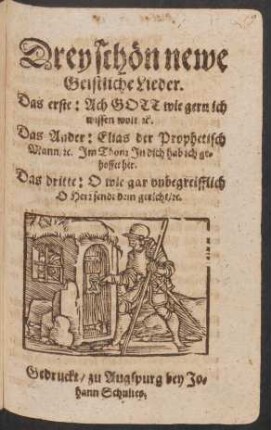 Drey schön newe
Geistliche Lieder.
Das erste: Ach GOTT wie gern ich
wissen wolt ꝛc.
Das Ander: Elias der Prophetisch
Mann/ꝛc. Im Thon: In dich hab ich ge-
hoffet her.
Das dritte: O wie gar vnbegreifflich
O Herr sende dein gericht/ꝛc.
Gedruckt/ zu Augspurg bey Jo-
hann Schultes.